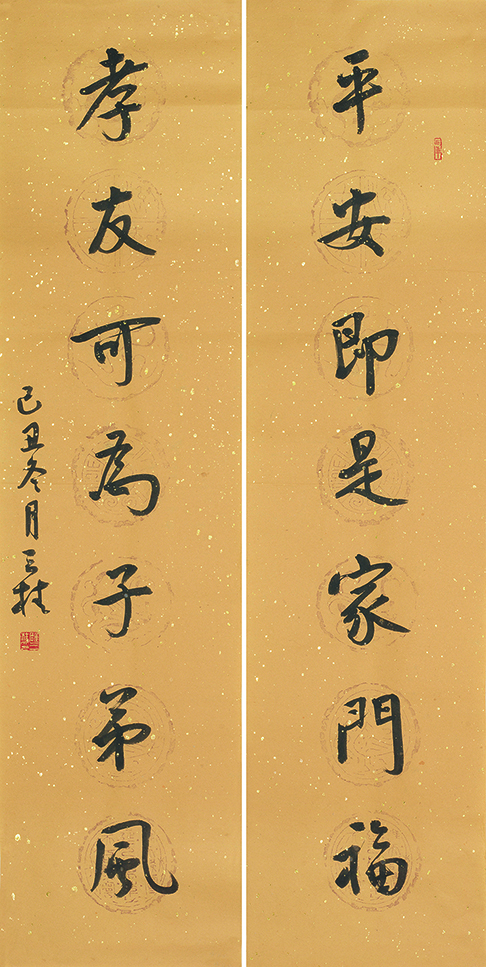 平安即是家門福
孝友可為子弟風
己丑冬月三桂